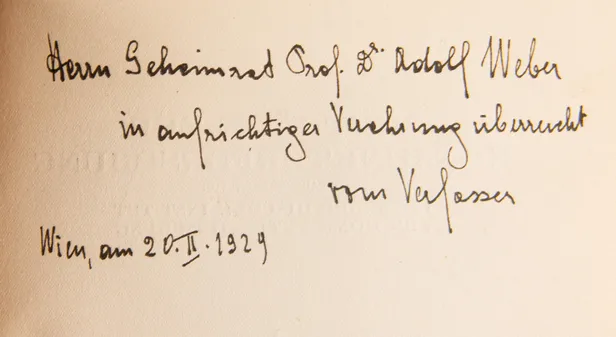 Herrn Geheimrat Prof. Dr. Adolf Weber
in aufrichtiger Verehrung überreicht
vom Verfasser
Wien, am 20.II.1929